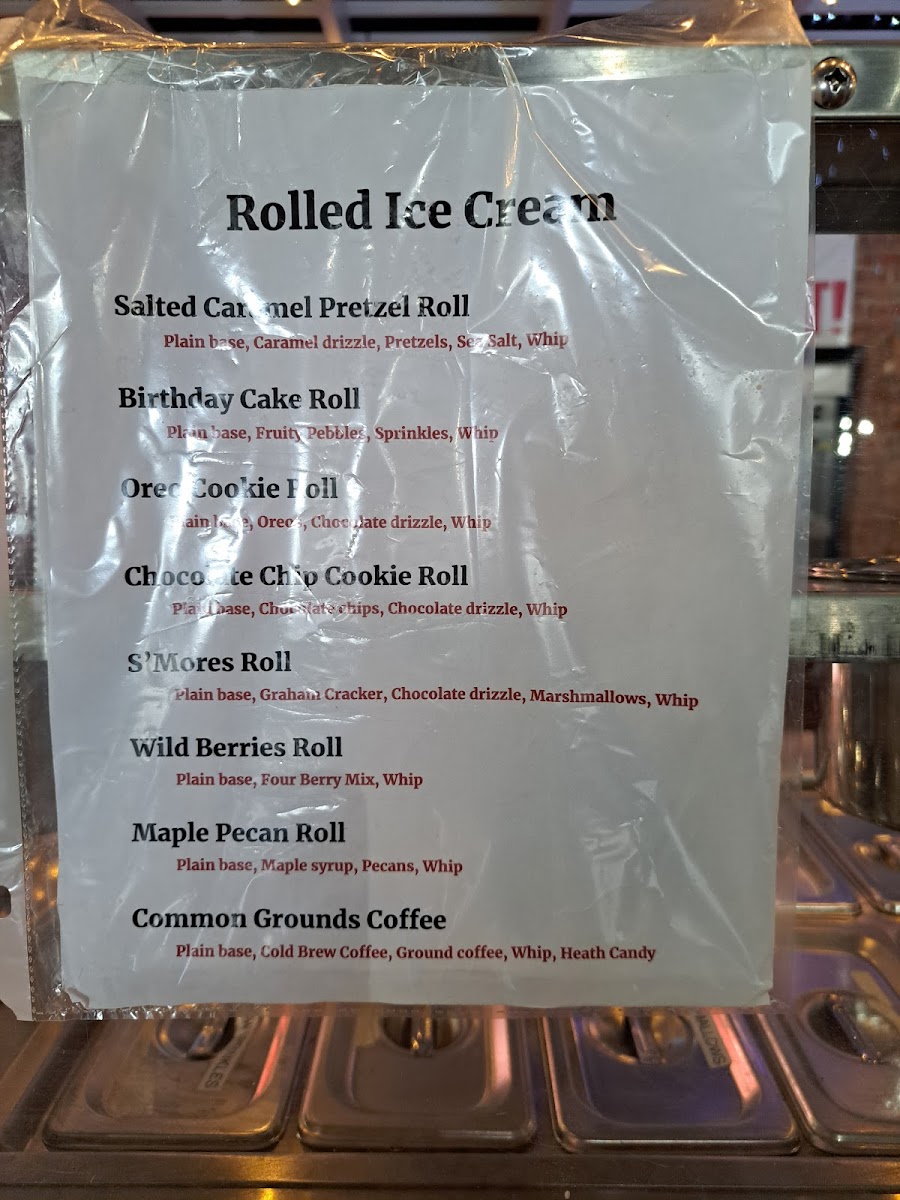 Rolled Ice Cream
Salted Caramel Pretzel Roll
Plain base, Caramel drizzle, Pretzels, Sea Salt, Whip
Birthday Cake Roll
Plain base, Fruity Pebbles, Sprinkles, Whip
Oreo Cookie Roll
Plain base, Oreos, Chocolate drizzle, Whip
Chocolate Chip Cookie Roll
Plain base, Chocolate chips, Chocolate drizzle, Whip
S'Mores Roll
Plain base, Graham Cracker, Chocolate drizzle, Marshmallows, Whip
Wild Berries Roll
Plain base, Four Berry Mix, Whip
Maple Pecan Roll
Plain base, Maple syrup, Pecans, Whip
Common Grounds Coffee
Plain base, Cold Brew Coffee, Ground coffee, Whip, Heath Candy